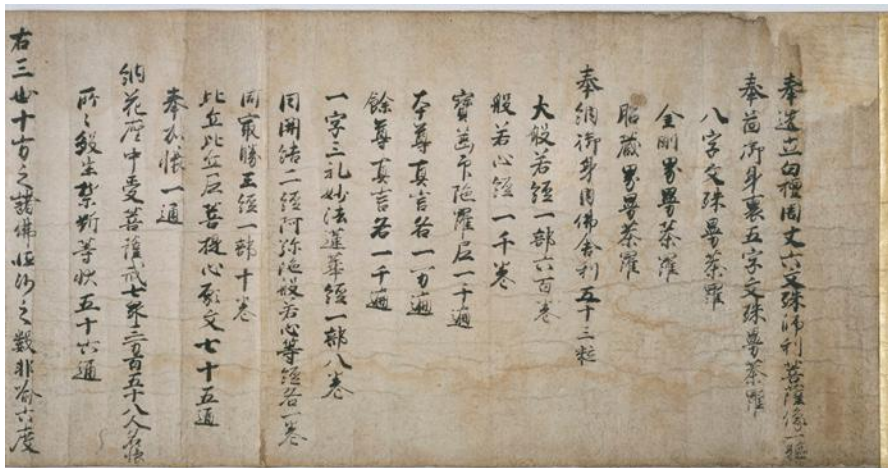 奉造立白檀周丈六文殊師利菩薩像一躯
奉荘御身裏五字文殊曼荼羅
八字文殊曼荼羅
金剛界曼荼羅
胎蔵界曼荼羅
奉納御身内佛舎利五十三粒
大般若経一部六百巻
般若心経一千巻
寶篋印陁羅尼一千遍
本尊真言各一万遍
餘尊真言各一千遍
一字三礼妙法蓮華経一部八巻
同開結二経阿弥陁般若心等経各一巻
同最勝王経一部十巻
比丘比丘尼菩提心願文七十五通
奉加帳一通
納花座中受菩薩戒七衆二万百五十八人名帳
所々殺生禁断等状五十六通
右三世十方之諸佛恒沙之数非喩六度